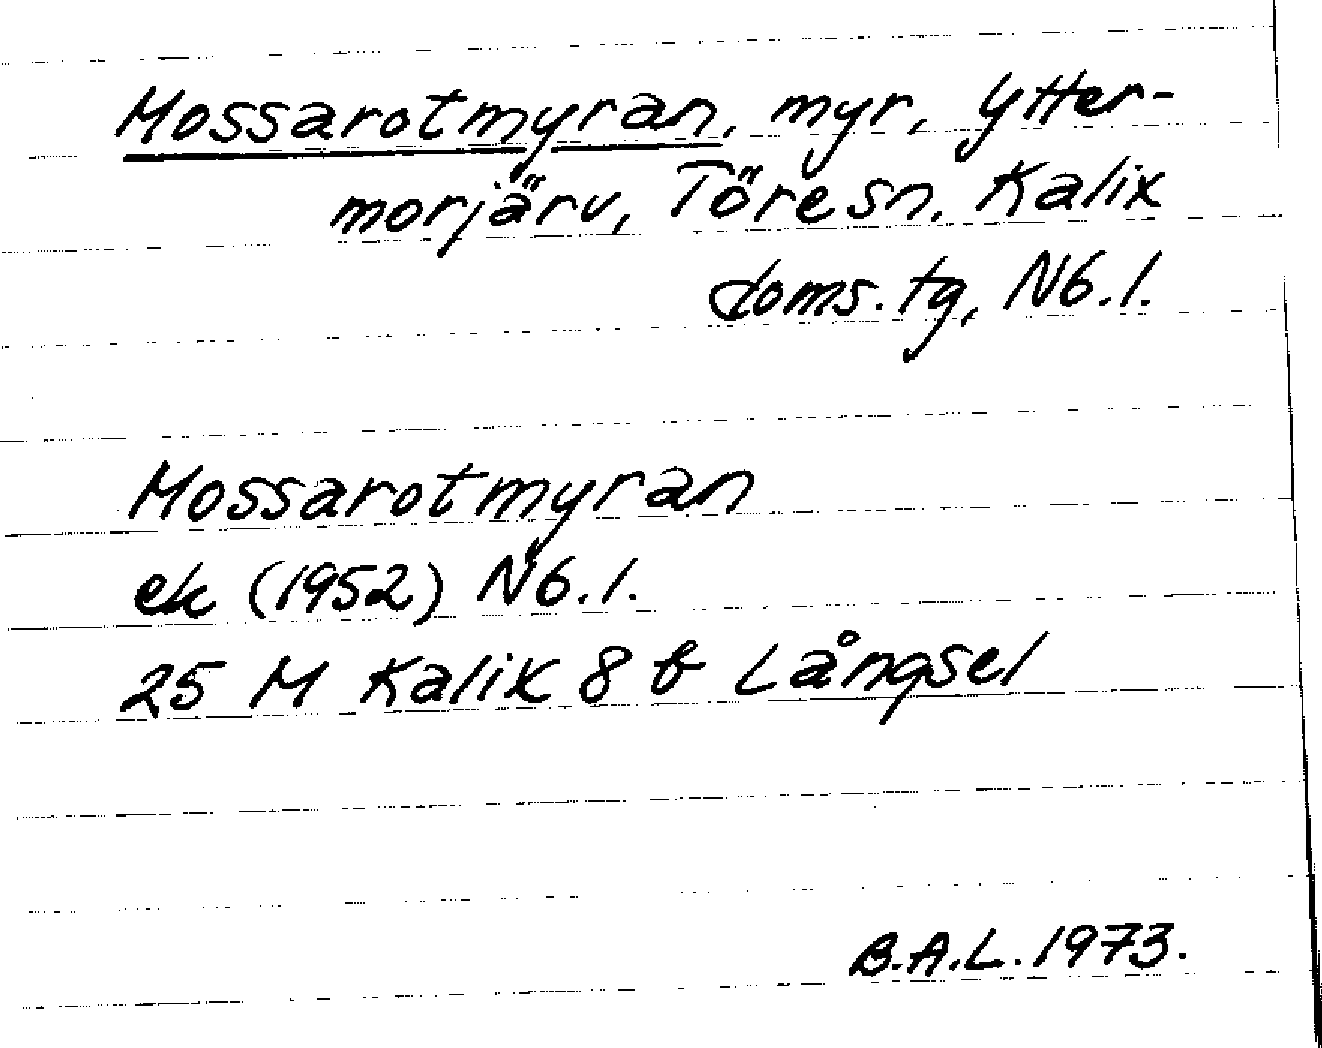 Mossarotmyran, myr, Ytter-
morjärv, Töre sn, Kalix
doms. tg, Nb. l.
Mossarotmyran
ek (1952) Nb. l.
25 M Kalix 8 b Långsel
B.A.L. 1973.